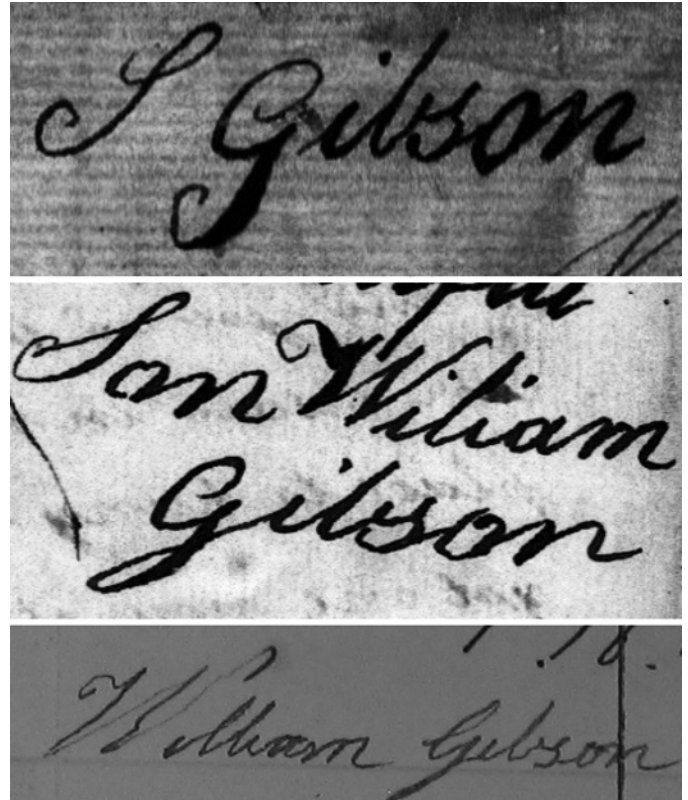 S Gibson
Son Wiliam
Gibson
William Gibson